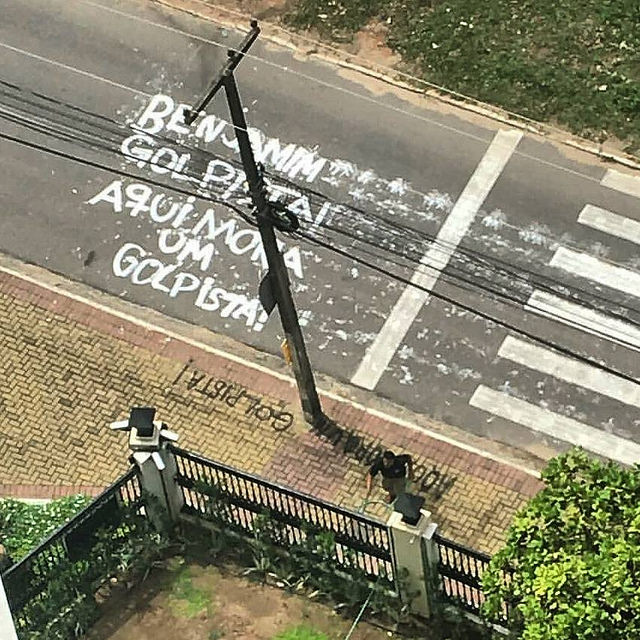 BENJAMIM
GOLPISTA!
AQUI MORA
UM
GOLPISTA!
GOLPISTA!